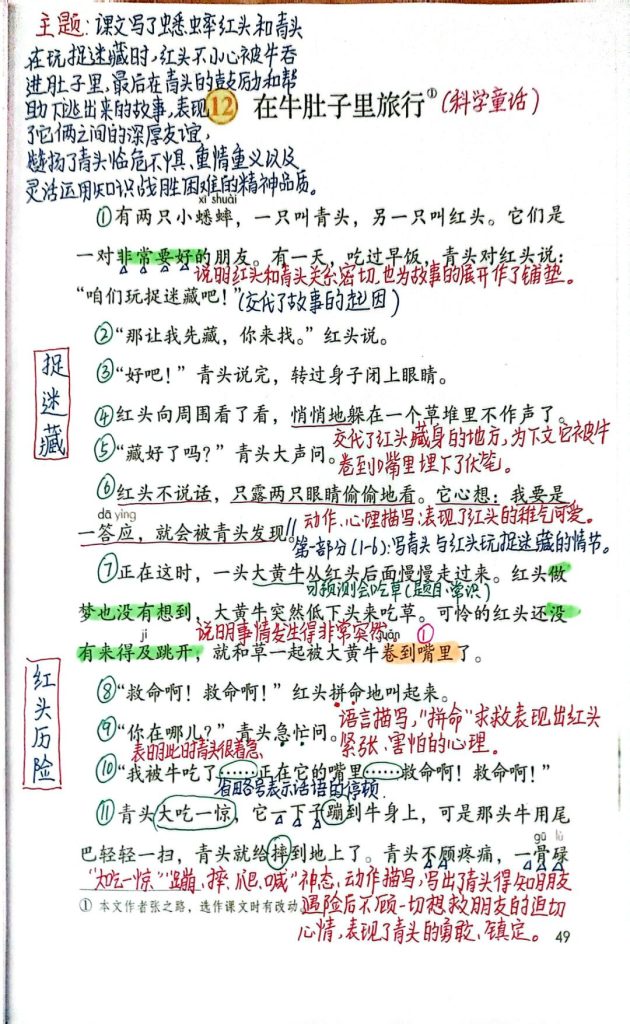 主题：课文写了蟋蟀红头和青头
在玩捉迷藏时，红头不小心被牛吞
进肚子里，最后在青头的鼓励和帮
助下逃出来的故事，表现
了它俩之间的深厚友谊，
赞扬了青头临危不惧、重情重义以及
灵活运用知识战胜困难的精神品质。
12 在牛肚子里旅行①（科学童话）
xī shuài
①有两只小蟋蟀，一只叫青头，另一只叫红头。它们是
一对非常要好的朋友。有一天，吃过早饭，青头对红头说：
说明红头和青头关系密切，也为故事的展开作了铺垫。
“咱们玩捉迷藏吧！”（交代了故事的起因）
②“那让我先藏，你来找。”红头说。
捉迷藏
③“好吧！”青头说完，转过身子闭上眼睛。
④红头向周围看了看，悄悄地躲在一个草堆里不作声了。
⑤“藏好了吗？”青头大声问。
交代了红头藏身的地方，为下文它被牛
卷到嘴里埋下了伏笔。
⑥红头不说话，只露两只眼睛偷偷地看。它心想：我要是
dā ying
一答应，就会被青头发现。//
动作、心理描写：表现了红头的稚气可爱。
第一部分（1-6）：写青头与红头玩捉迷藏的情节。
⑦正在这时，一头大黄牛从红头后面慢慢走过来。红头做
可预测会吃草（题目、常识）
梦也没有想到，大黄牛突然低下头来吃草。可怜的红头还没
说明事情发生得非常突然
jí
juǎn
①
有来得及跳开，就和草一起被大黄牛卷到嘴里了。
红头历险
⑧“救命啊！救命啊！”红头拼命地叫起来。
⑨“你在哪儿？”青头急忙问。
语言描写，“拼命”求救表现出红头
紧张、害怕的心理。
表明此时青头很着急
⑩“我被牛吃了……正在它的嘴里……救命啊！救命啊！”
省略号表示话语的停顿
⑪青头大吃一惊，它一下子蹦到牛身上，可是那头牛用尾
巴轻轻一扫，青头就给摔到地上了。青头不顾疼痛，一骨碌
gū lù
“大吃一惊”“蹦、摔、爬、喊”神态、动作描写，写出了青头得知朋友
遇险后不顾一切想救朋友的迫切
心情，表现了青头的勇敢、镇定。
① 本文作者张之路，选作课文时有改动。
49